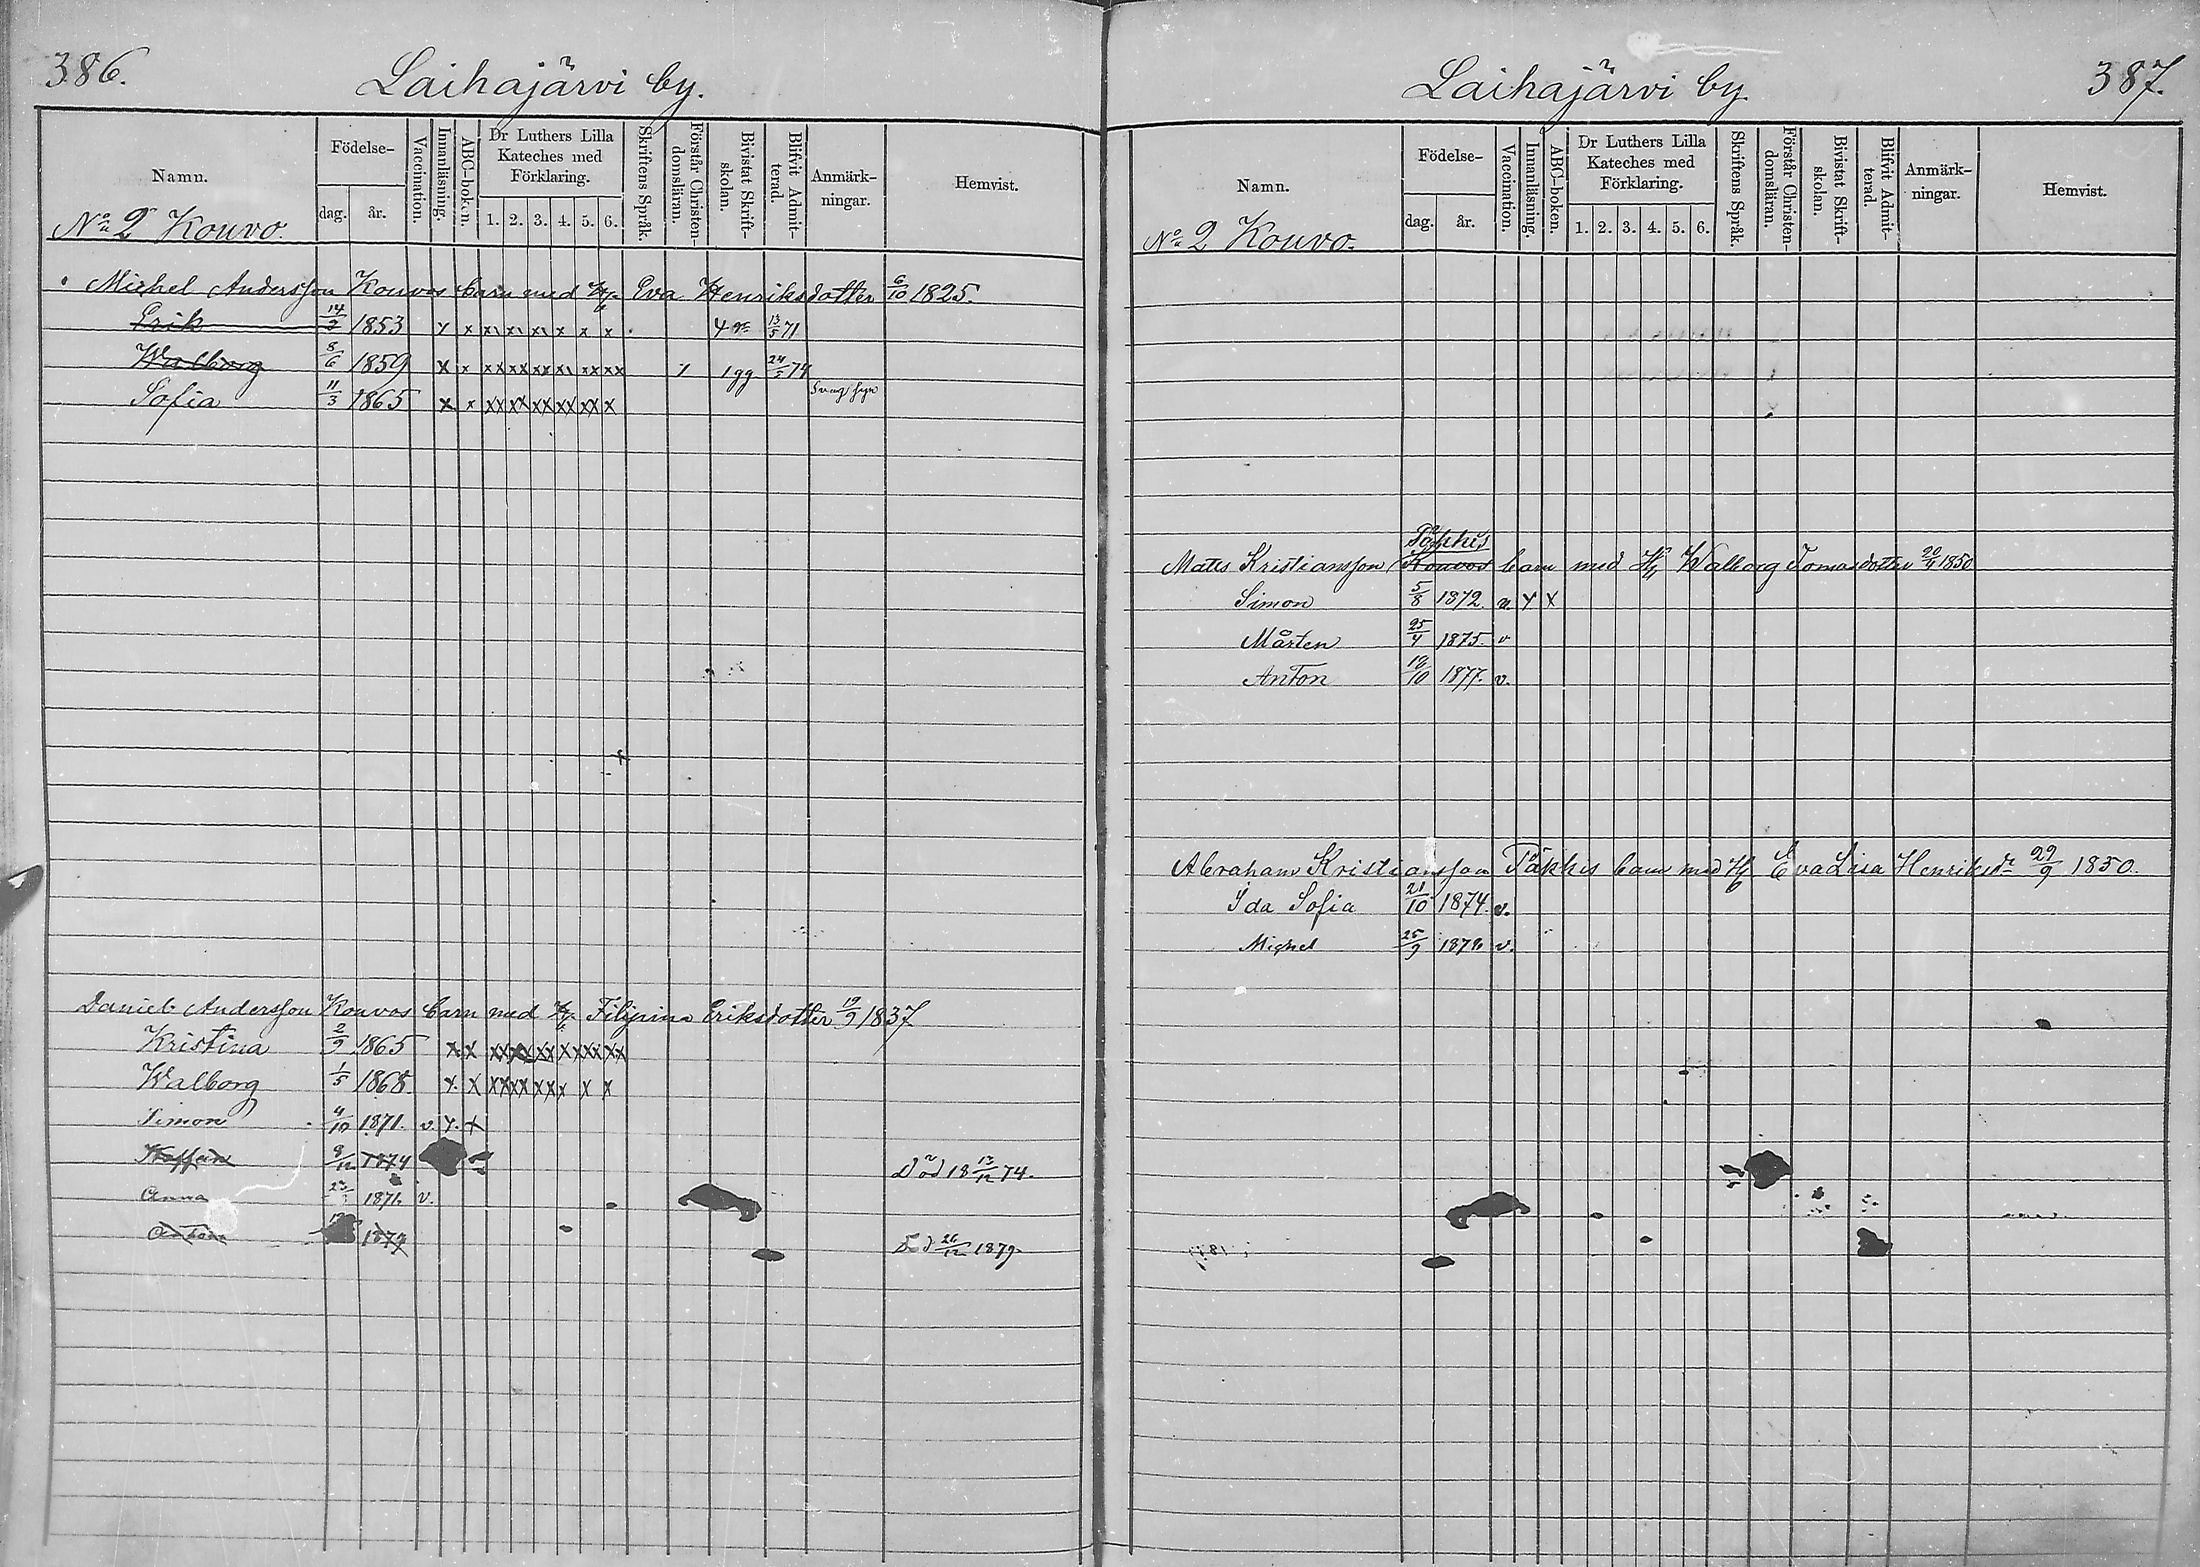 386.
Laihajärvi by.
Namn.
Födelse-
dag.
år.
Vaccination.
Innanläsning.
ABC-boken.
Dr Luthers Lilla
Kateches med
Förklaring.
1. 2. 3. 4. 5. 6.
Skriftens Språk.
Förstår Christen-
domsläran.
Bivistat Skrift-
skolan.
Blifvit Admit-
terad.
Anmärk-
ningar.
Hemvist.
No 2 Kouvo.
Michel Andersson Kouvos barn med Eva Henriksdotter 6/10 1825.
Erik 14/2 1853 x x x x x x x x 13/5 71
Walborg 8/6 1859 x x xx xx xx xx xx xx 1 gg 24/5 74
Sofia 11/3 1865 x x xx xx xx xx xx x
Daniel Andersson Kouvos barn med Filipina Eriksdotter 19/9 1837
Kristina 2/9 1865 x x xx xx xx x xxx xx
Walborg 1/5 1868. x x xx xx xx x x x
Simon 4/10 1871. v. x x
Staffan 9/12 1874 Död 18 13/12 74.
Anna 1871. v.
Anton 1879 Död 26/12 1879
387.
Laihajärvi by.
Namn.
Födelse-
dag.
år.
Vaccination.
Innanläsning.
ABC-boken.
Dr Luthers Lilla
Kateches med
Förklaring.
1. 2. 3. 4. 5. 6.
Skriftens Språk.
Förstår Christen-
domsläran.
Bivistat Skrift-
skolan.
Blifvit Admit-
terad.
Anmärk-
ningar.
Hemvist.
No 2 Kouvo.
Päkkis
Matts Kristiansson Kouvos barn med H. Walborg Tomasdotter 1850
Simon 5/8 1872. v x x
Mårten 25/4 1875. v
Anton 1877. v.
Abraham Kristiansson Päkkis barn med H. Eva Lisa Henriksdr 29/9 1850.
Ida Sofia 21/10 1874. v.
Michel 25/9 1878 v.